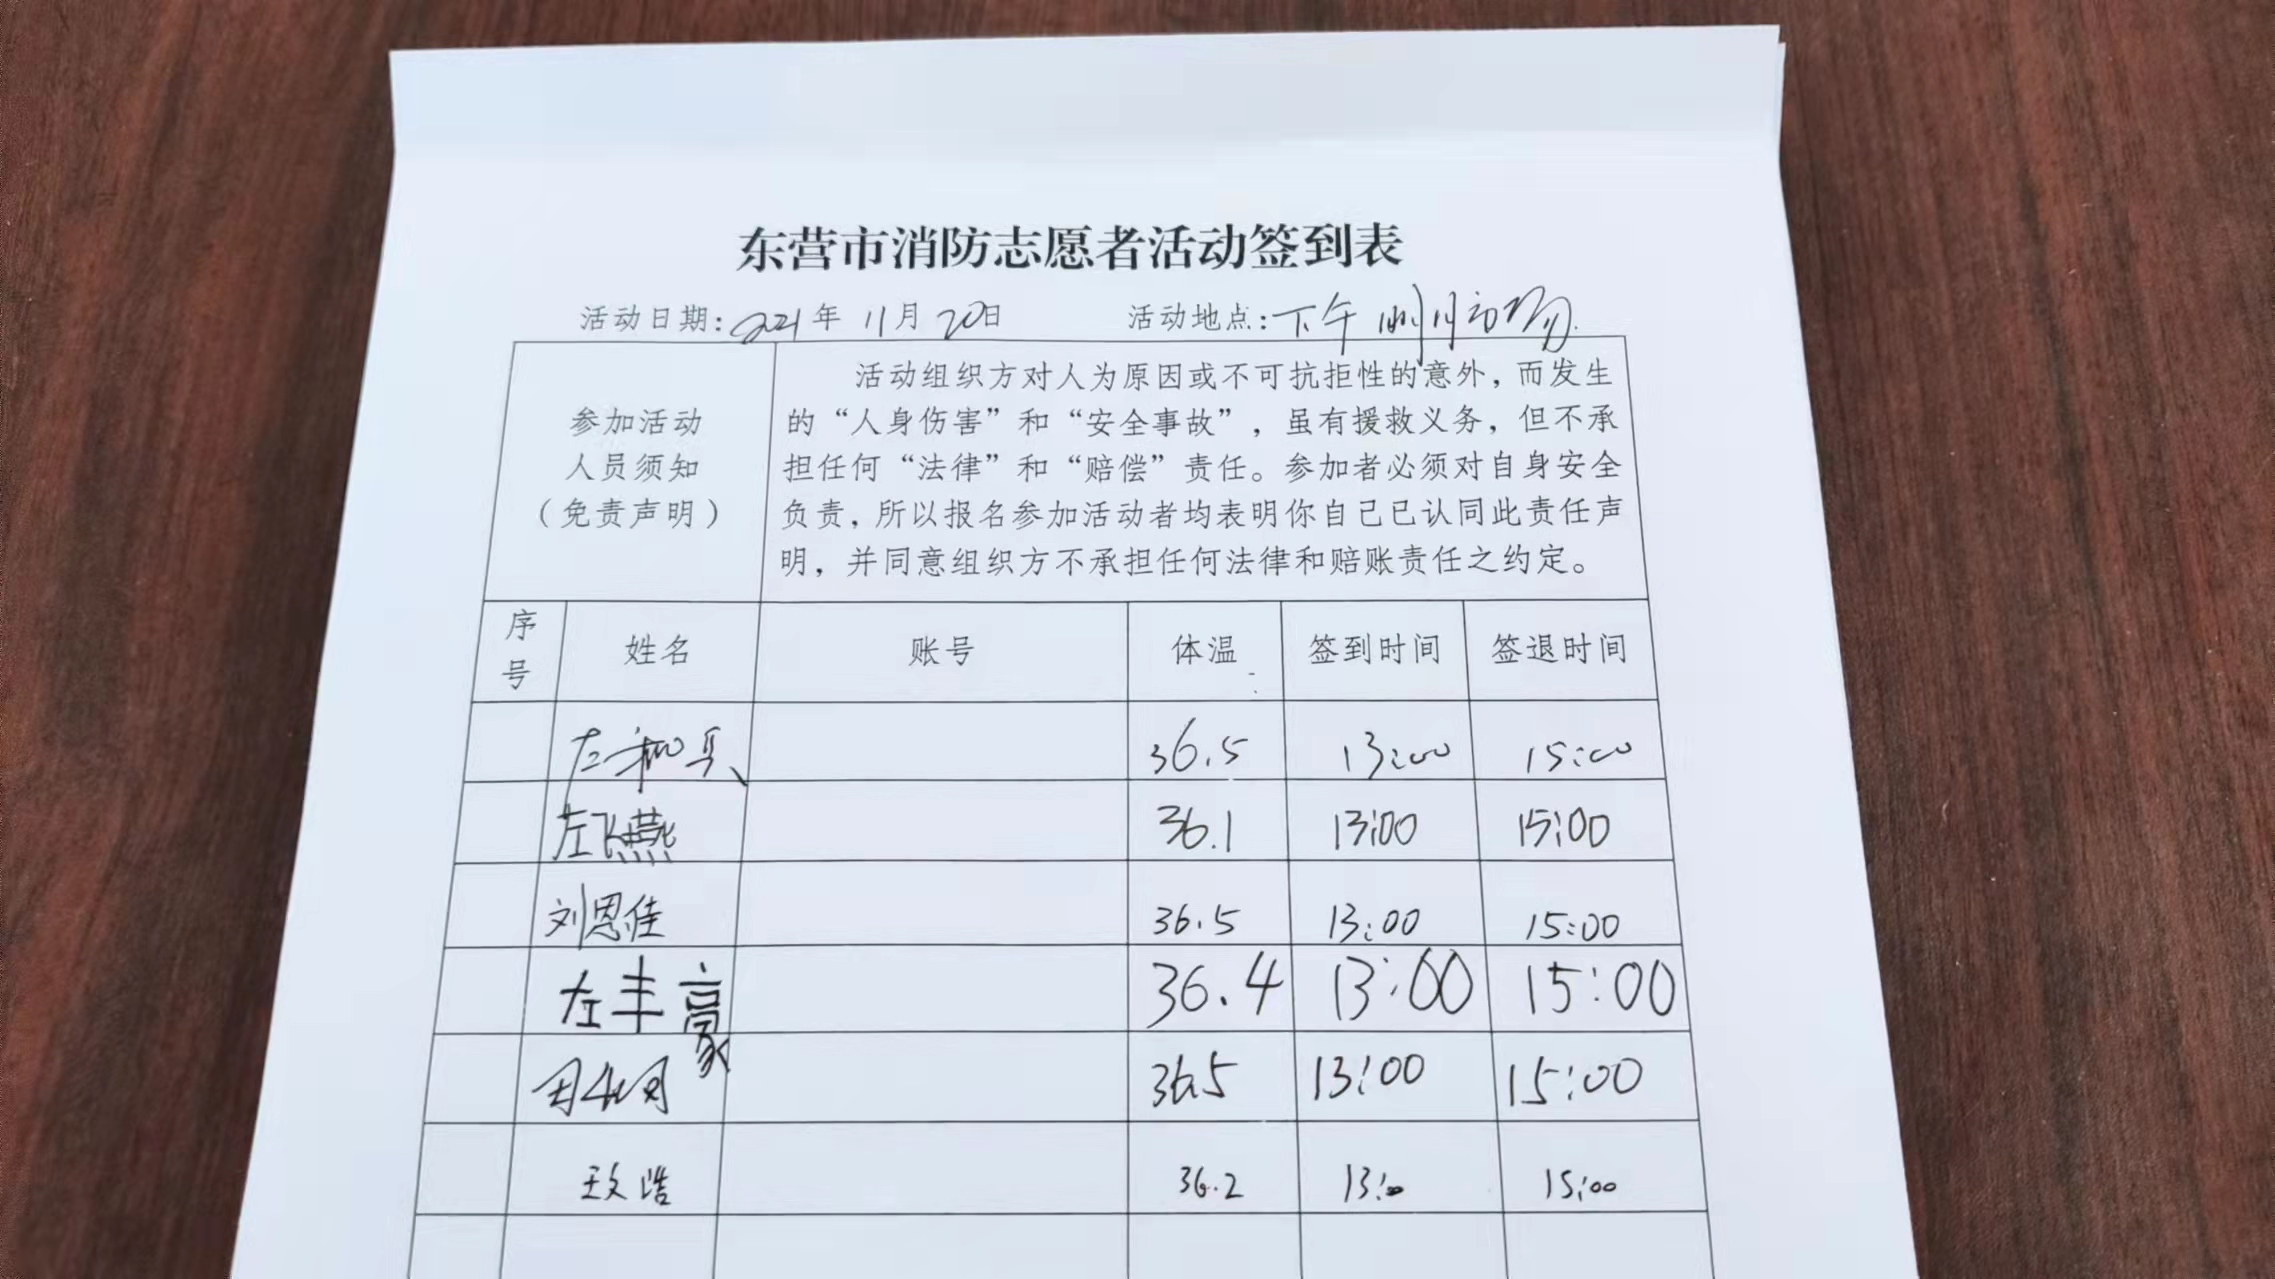 东营市消防志愿者活动签到表
活动日期:2021年 11月 20日 活动地点:下午
活动组织方对人为原因或不可抗拒性的意外，而发生
的“人身伤害”和“安全事故”，虽有援救义务，但不承
担任何“法律”和“赔偿”责任。参加者必须对自身安全
负责，所以报名参加活动者均表明你自己已认同此责任声
明，并同意组织方不承担任何法律和赔账责任之约定。
参加活动
人员须知
（免责声明）
序号 姓名 账号 体温 签到时间 签退时间
36.5 13:00 15:00
左飞燕 36.1 13:00 15:00
刘恩佳 36.5 13:00 15:00
左丰豪 36.4 13:00 15:00
36.5 13:00 15:00
王文浩 36.2 13:00 15:00